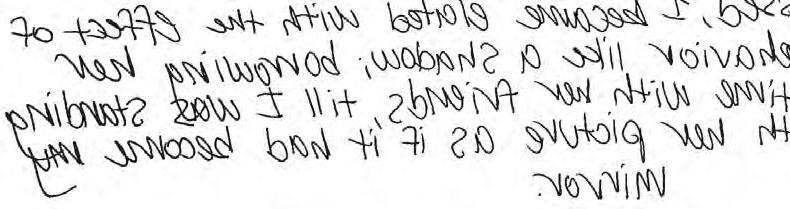 I became elated with the effect of
ehavior like a shadow; borrowing her
time with her friends, till I was standing
th her picture as if it had become my
mirror.